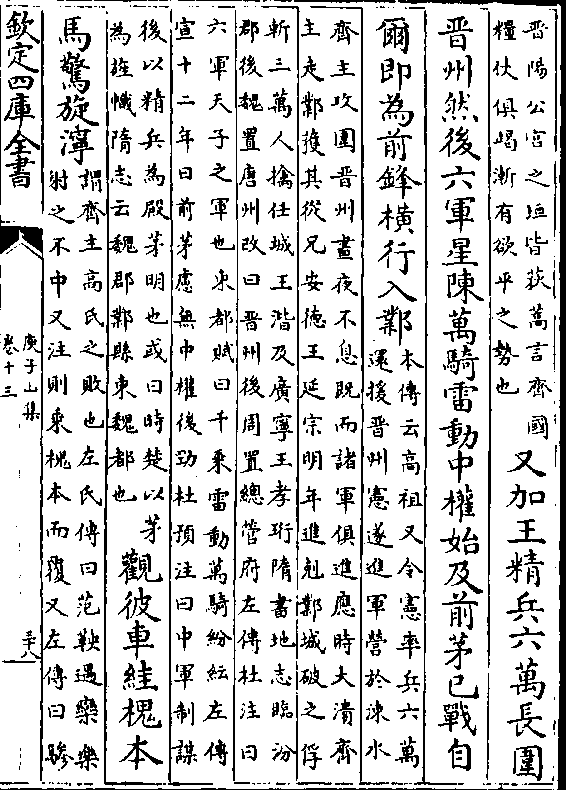 晋陽公宮之垣皆荻蒿言齊國
糧仗俱竭漸有欲平之勢也
又加王精兵六萬長圍
晋州然後六軍星陳萬騎雷動中權始及前茅已戰自
爾即為前鋒橫行入鄴
本傳云高祖又令憲率兵六萬
還援晋州憲遂進軍營於涑水
齊主攻圍晋州晝夜不息既而諸軍俱進應時大潰齊
主走鄴獲其從兄安德王延宗明年進剋鄴城破之俘
斬三萬人擒任城王湝及廣寧王孝珩隋書地志臨汾
郡後魏置唐州改曰晋州後周置總管府左傳杜注曰
六軍天子之軍也東都賦曰千乘雷動萬騎紛紜左傳
宣十二年曰前茅慮無中權後勁杜預注曰中軍制謀
後以精兵為殿茅明也或曰時楚以茅
為旌幟隋志云魏郡鄴縣東魏都也
觀彼車絓槐本
馬驚旋濘
謂齊主高氏之敗也左氏傳曰范鞅遇欒樂
射之不中又注則乘槐本而覆又左傳曰驂
欽定四庫全書
庾子山集
卷十三
三十八